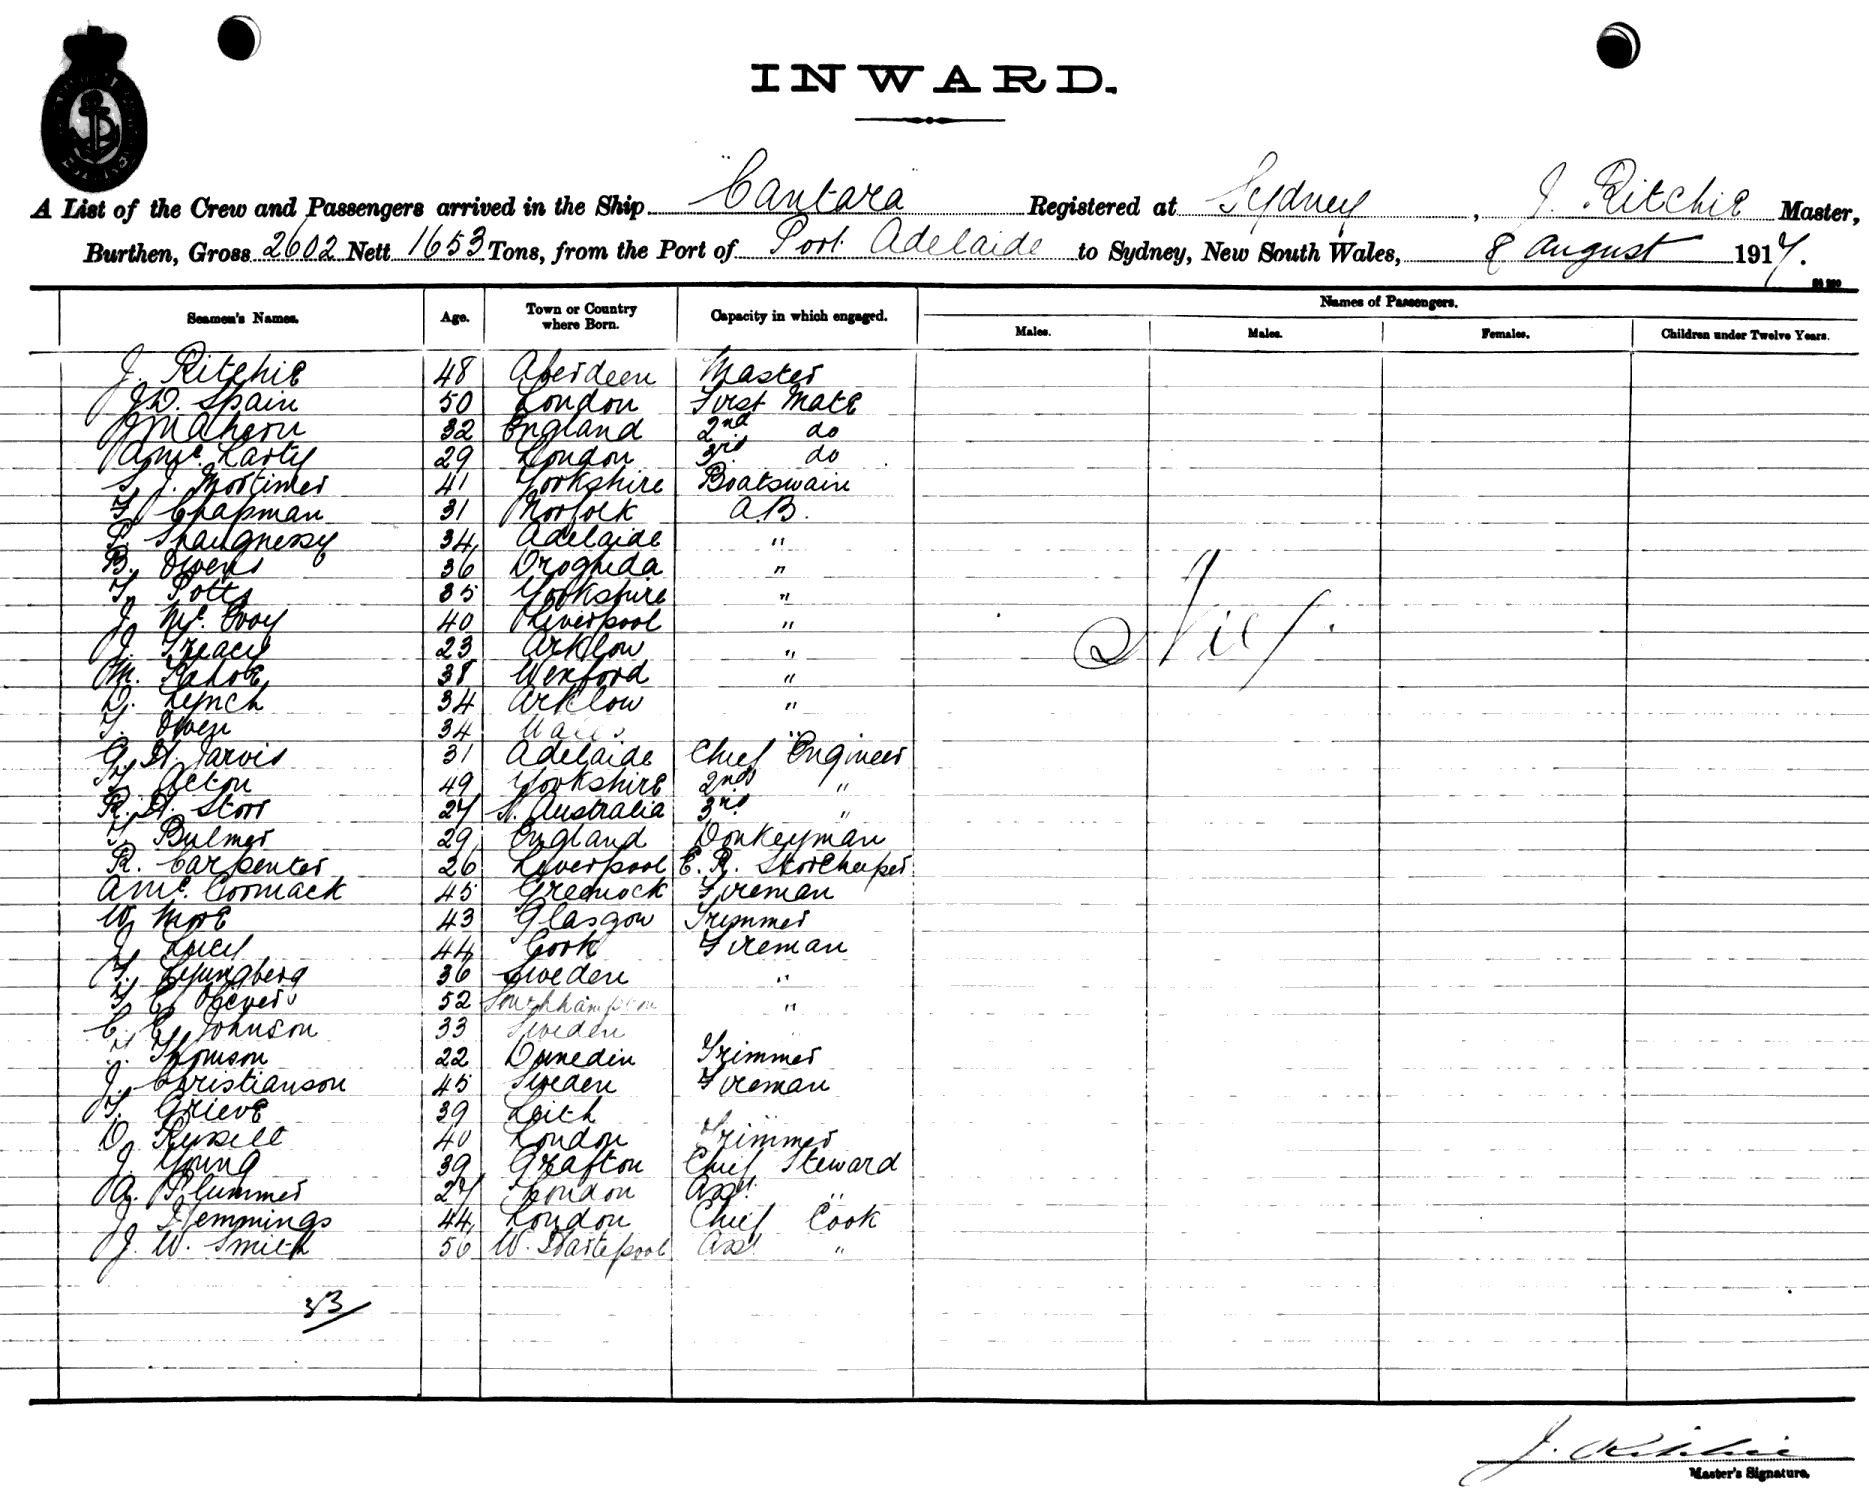 INWARD.
A List of the Crew and Passengers arrived in the Ship "Cantara" Registered at Sydney, J. Ritchie Master,
Burthen, Gross 2602 Nett 1653 Tons, from the Port of Port Adelaide to Sydney, New South Wales, 8 August 1917.
Seamen's Names. Age. Town or Country where Born. Capacity in which engaged. Names of Passengers.
Males. Males. Females. Children under Twelve Years.
J. Ritchie 48 Aberdeen Master
J.D. Spain 50 London First Mate
32 England 2nd do
A Mc Carty 29 London 3rd do
S. J. Mortimer 41 Yorkshire Boatswain
F. Chapman 31 Norfolk A.B.
P. Shaugnessy 34 Adelaide "
B. Owens 36 Drogheda "
T. Potts 35 Yorkshire "
J. Mc Evoy 40 Liverpool "
J. Treacy 23 Arklow "
M. Kahoe 38 Wexford "
D. Lynch 34 Arklow "
T. Owen 34 Wales "
G. H. Jarvis 31 Adelaide Chief Engineer
Acton 49 Yorkshire 2nd "
R. H. Storr 27 S. Australia 3rd "
T. Bulmer 29 England Donkeyman
R. Carpenter 26 Liverpool E. R. Storekeeper
A Mc Cormack 45 Greenock Fireman
W. More 43 Glasgow Trimmer
J. Lucy 44 Cork Fireman
Ljungberg 36 Sweden "
52 Southhampton "
C. E. Johnson 33 Sweden
Thomson 22 Dunedin Trimmer
J. Christianson 45 Sweden Fireman
T. Grieve 39 Leith "
D. Russell 40 London Trimmer
J. Young 39 Grafton Chief Steward
A. Plummer 27 London Asst "
J. Hemmings 44 London Chief Cook
J. W. Smith 56 W. Hartlepool Asst "
Nil.
33
J. Ritchie
Master's Signature.